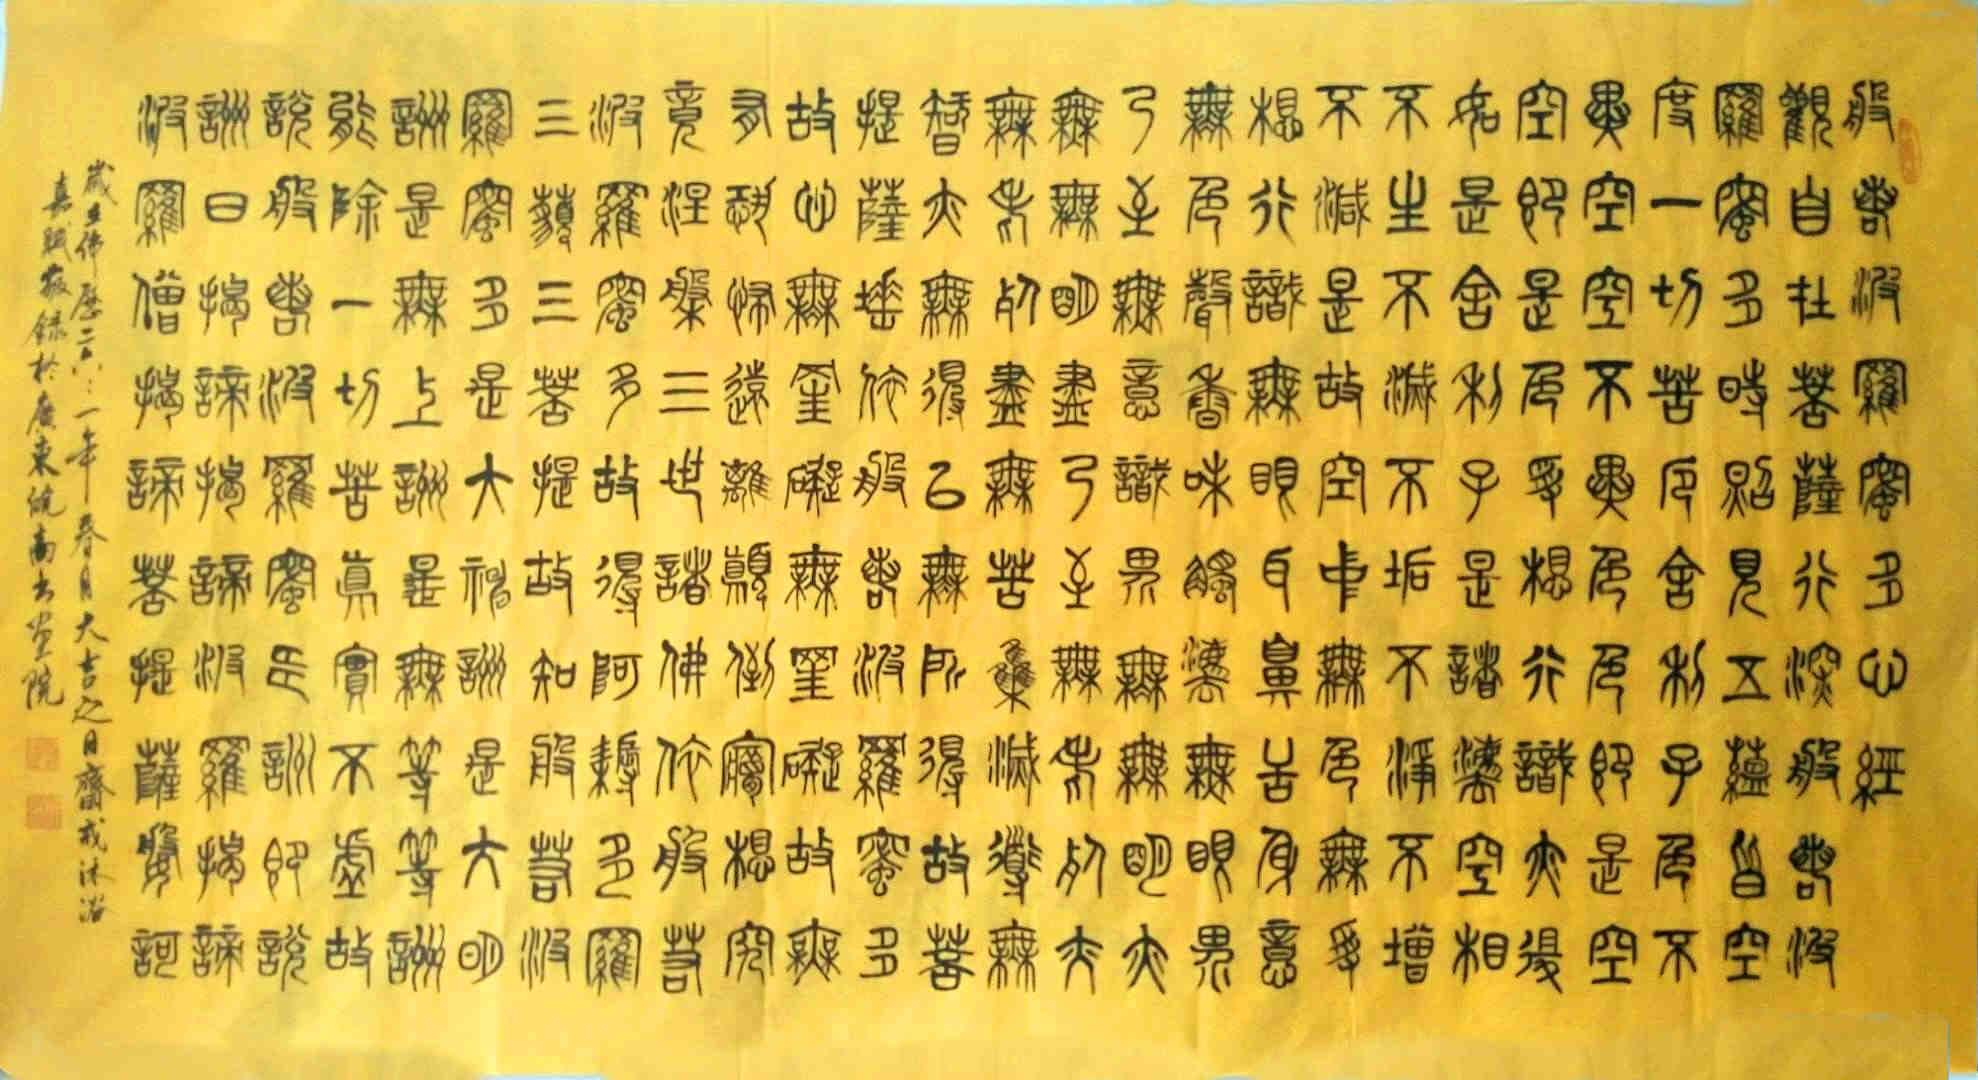 般若波羅蜜多心經
觀自在菩薩行深般若波
羅蜜多時照見五蘊皆空
度一切苦厄舍利子色不
異空空不異色色即是空
空即是色受想行識亦復
如是舍利子是諸法空相
不生不滅不垢不淨不增
不減是故空中無色無受
想行識無眼耳鼻舌身意
無色聲香味觸法無眼界
乃至無意識界無無明亦
無無明盡乃至無老死亦
無老死盡無苦集滅道無
智亦無得以無所得故菩
提薩埵依般若波羅蜜多
故心無罣礙無罣礙故無
有恐怖遠離顛倒夢想究
竟涅槃三世諸佛依般若
波羅蜜多故得阿耨多羅
三藐三菩提故知般若波
羅蜜多是大神詶是大明
詶是無上詶是無等等詶
能除一切苦真實不虛故
說般若波羅蜜多詶即說
詶曰揭諦揭諦波羅揭諦
波羅僧揭諦菩提薩婆訶
歲在佛歷二六一年春月大吉之日齋戒沐浴
嘉敬錄於廣東統商書畫院